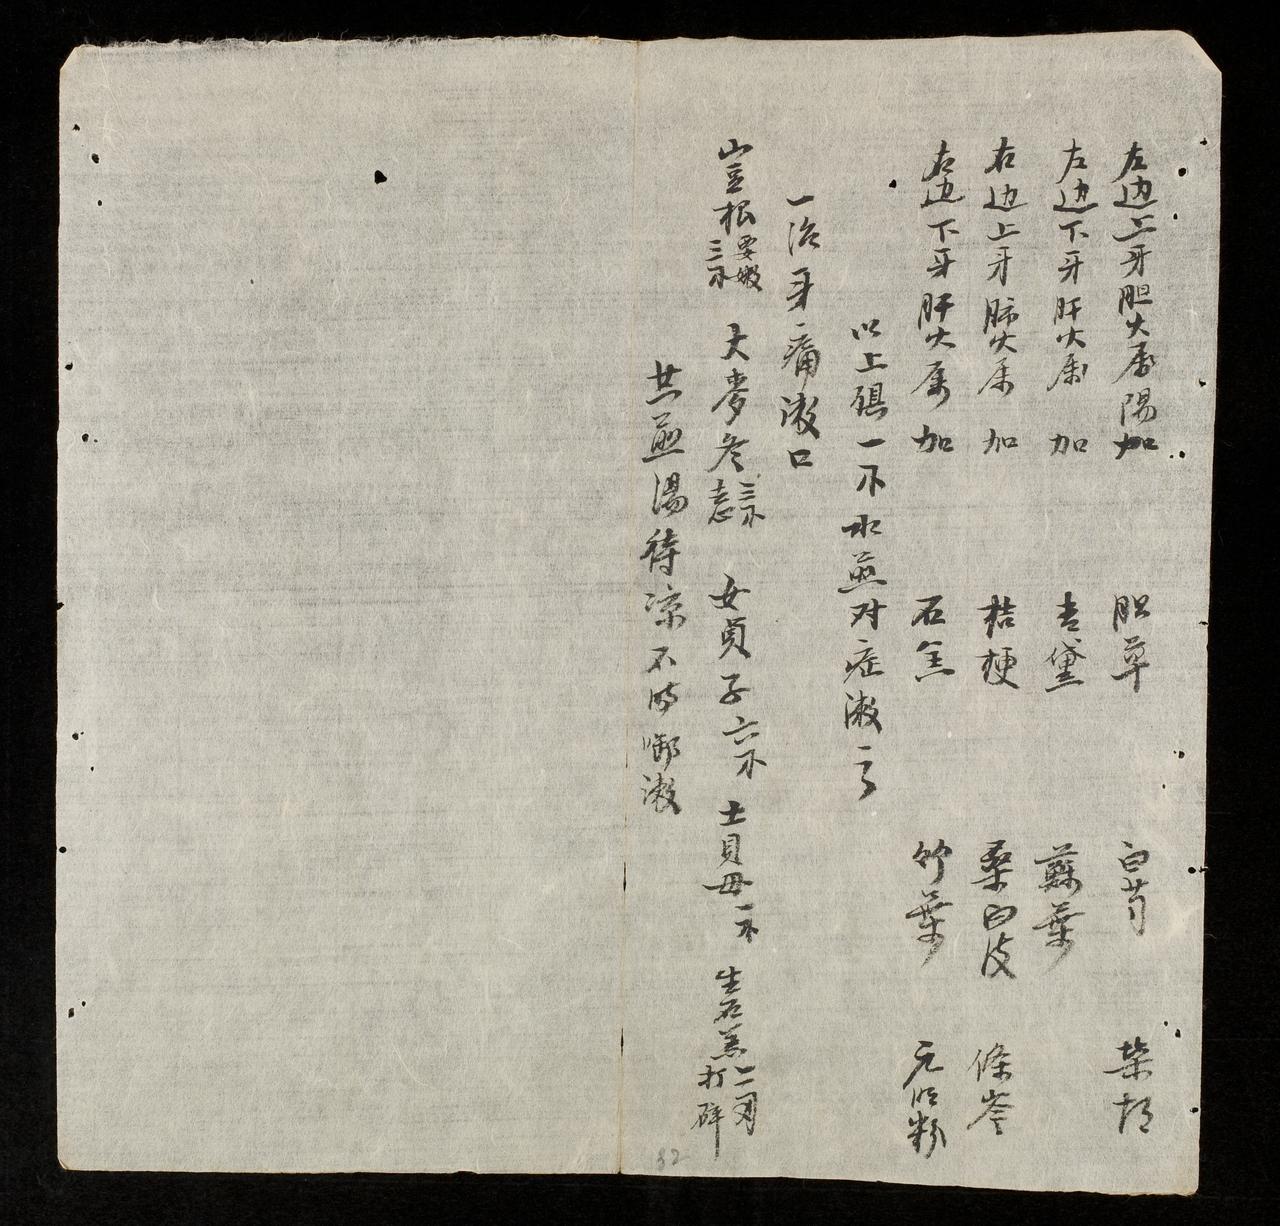 左边上牙胆火属陽加 胆草 白芍 柴胡
左边下牙肝火属 加 青黛 蘇葉
右边上牙肺火属 加 桔梗 桑白皮 條芩
右边下牙肝火属 加 石羔 竹葉 元明粉
以上 一 水煎对症漱之
一治牙痛漱口
山豆根 三 大麥冬 三 女貞子六 土貝母一 生石羔二 打碎
共煎湯待凉不时啣漱
32